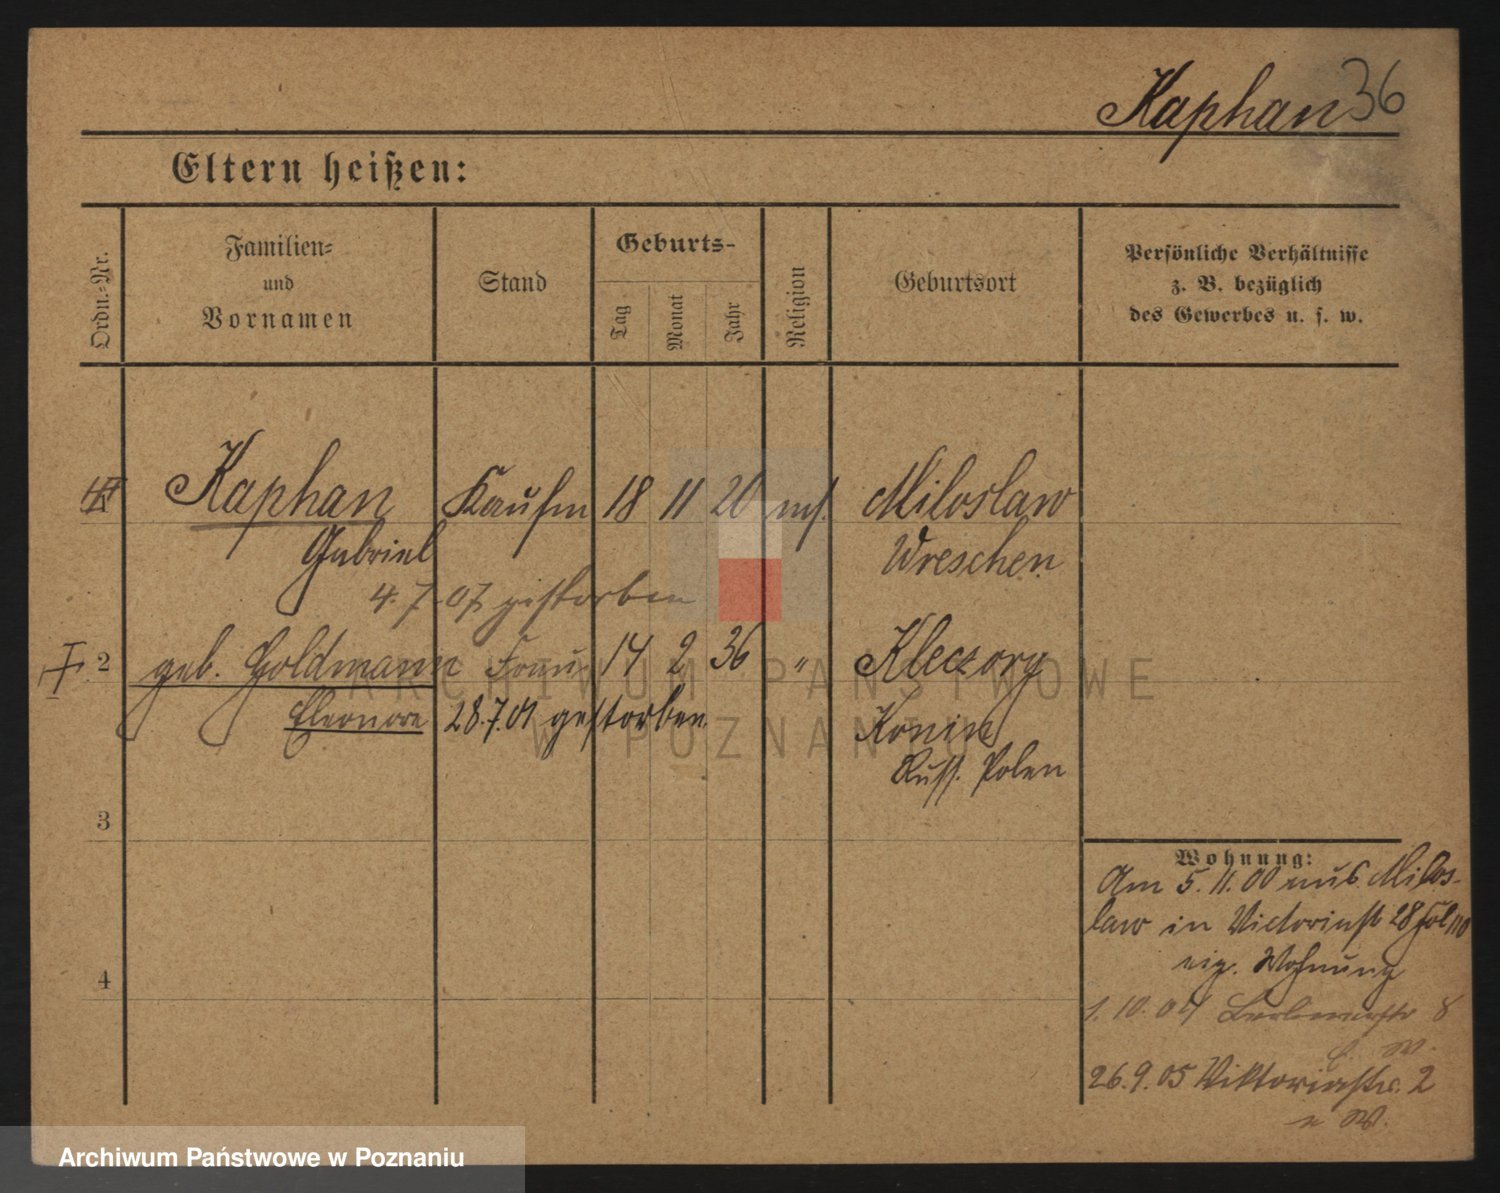 Kaphan 36
Eltern heißen:
Ordn.-Nr.
Familien- und Vornamen
Stand
Geburts-
Tag
Monat
Jahr
Religion
Geburtsort
Persönliche Verhältnisse
z. B. bezüglich
des Gewerbes u. s. w.
Kaphan Kaufm 18 11 20 mos. Miloslaw
Gabriel Wreschen
4. 7. 07 gestorben
2 geb. Goldmann Frau 14 2 36 " Kleczory
Eleonore 28.7.01 gestorben Konin
Russ. Polen
3
4
Wohnung:
Am 5. 11. 00 aus Milos-
law in Victoriastr 28
eig. Wohnung
1. 10. 04 8
e. W.
26. 9. 05 Viktoriastr. 2
e W.
ARCHIWUM PAŃSTWOWE
W POZNANIU
Archiwum Państwowe w Poznaniu